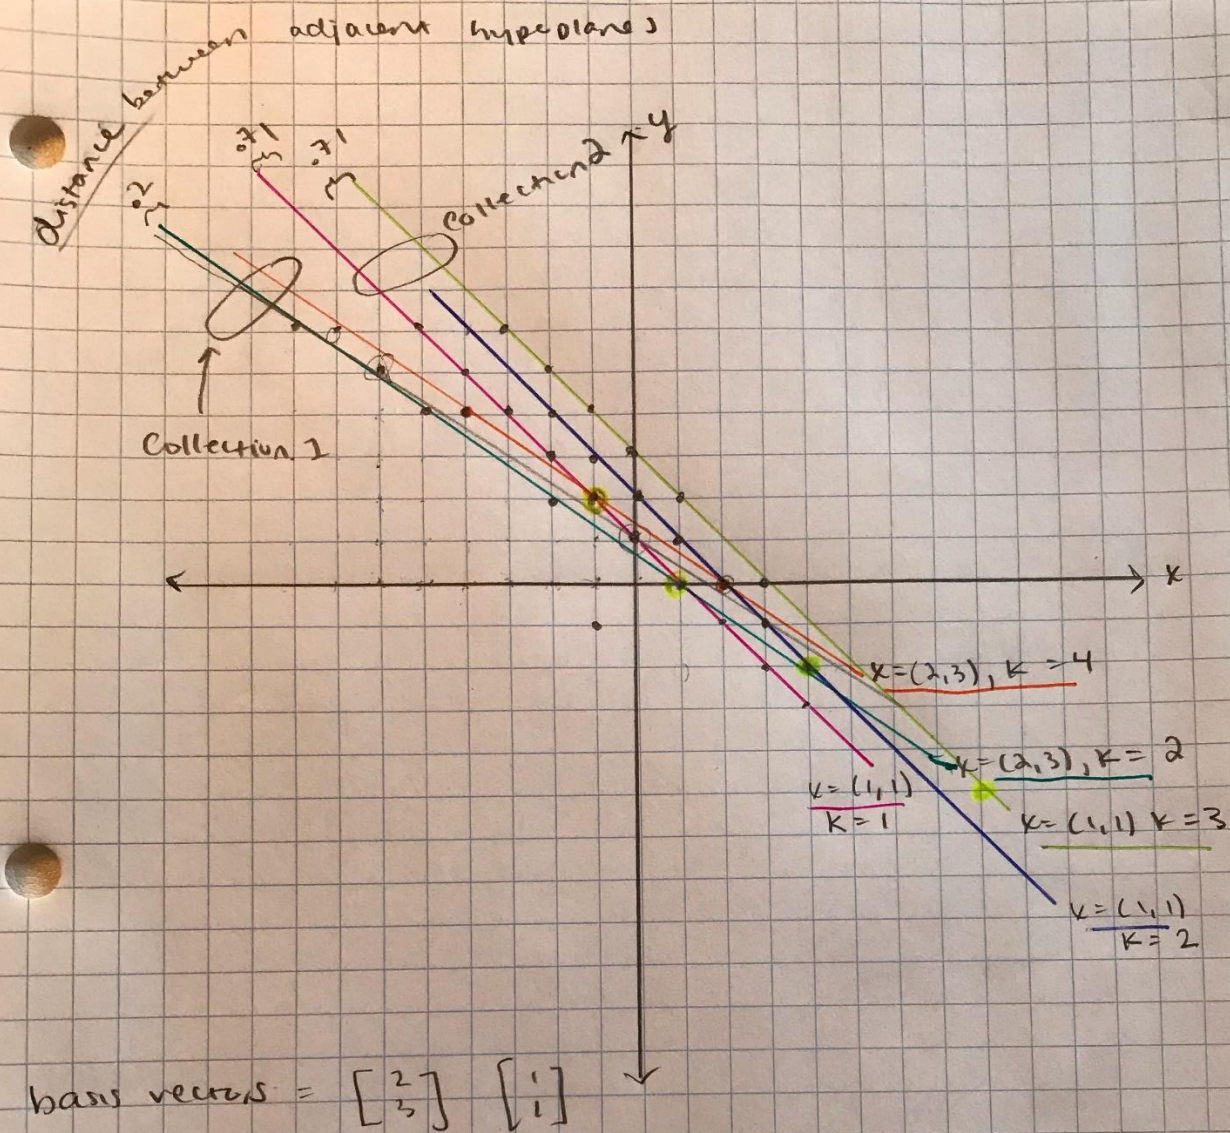 distance between adjacent hypeplanes
.2
.71
.71
y
Collection 2
Collection 1
x
x=(2,3), k=4
x=(2,3), k=2
x=(1,1)
k=1
x=(1,1) k=3
x=(1,1)
k=2
basis vectors = [2 3] [1 1]